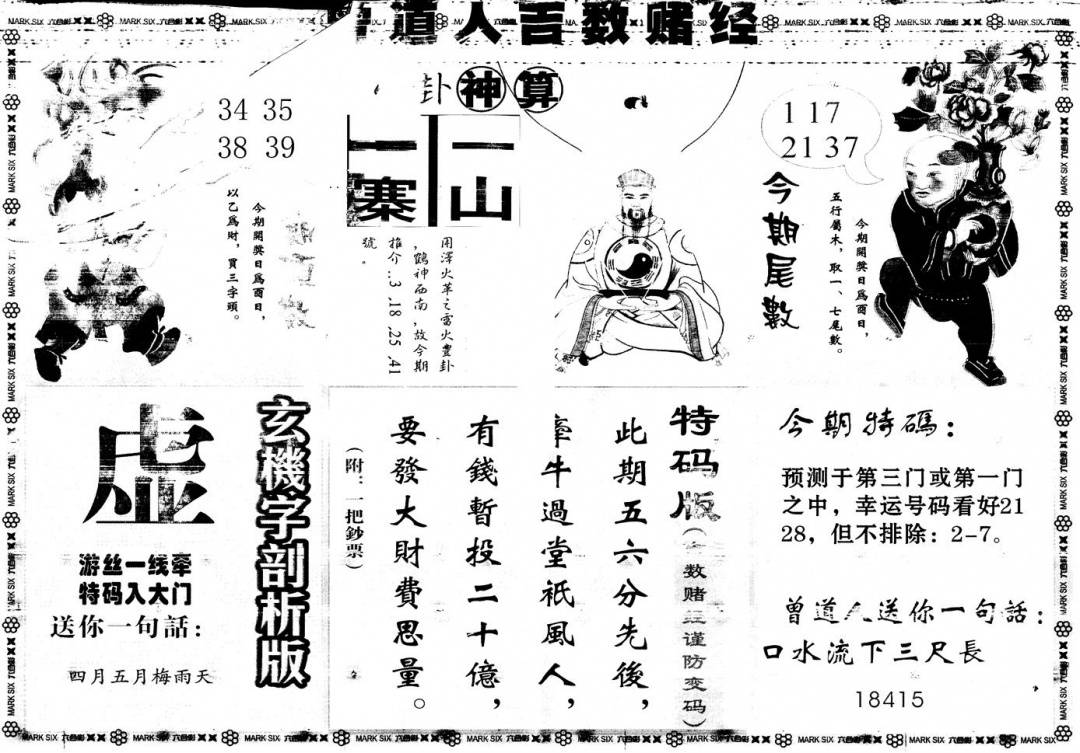 道人吉数赌经
卦神算
34 35
38 39
今期開獎日爲酉日，
以乙爲財，買三字頭。
一山
一寨
用澤火革之雷火豐卦
，鶴神西南，故今期
推介：3.18.25.41
號。
1 17
21 37
今期尾數
今期開獎日爲酉日，
五行屬木，取一、七尾數。
虚
游丝一线牵
特码入大门
送你一句話：
四月五月梅雨天
玄機字剖析版
特码版
数赌经谨防变码）
此期五六分先後，
牽牛過堂祇風人，
有錢暫投二十億，
要發大財費思量。
（附：一把鈔票）
今期特碼：
预测于第三门或第一门
之中，幸运号码看好21
28，但不排除：2-7。
曾道人送你一句話：
口水流下三尺長
18415
MARK SIX 六合彩